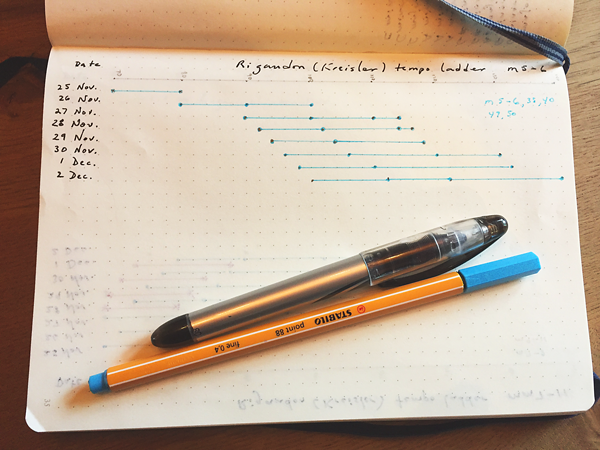 Date Rigaudon (Kreisler) tempo ladder m 5-6
25 Nov.
26 Nov.
27 Nov.
28 Nov.
29 Nov.
30 Nov.
1 Dec.
2 Dec.
m 5-6, 37, 40
47, 50
STABILO point 88 fine 0.4